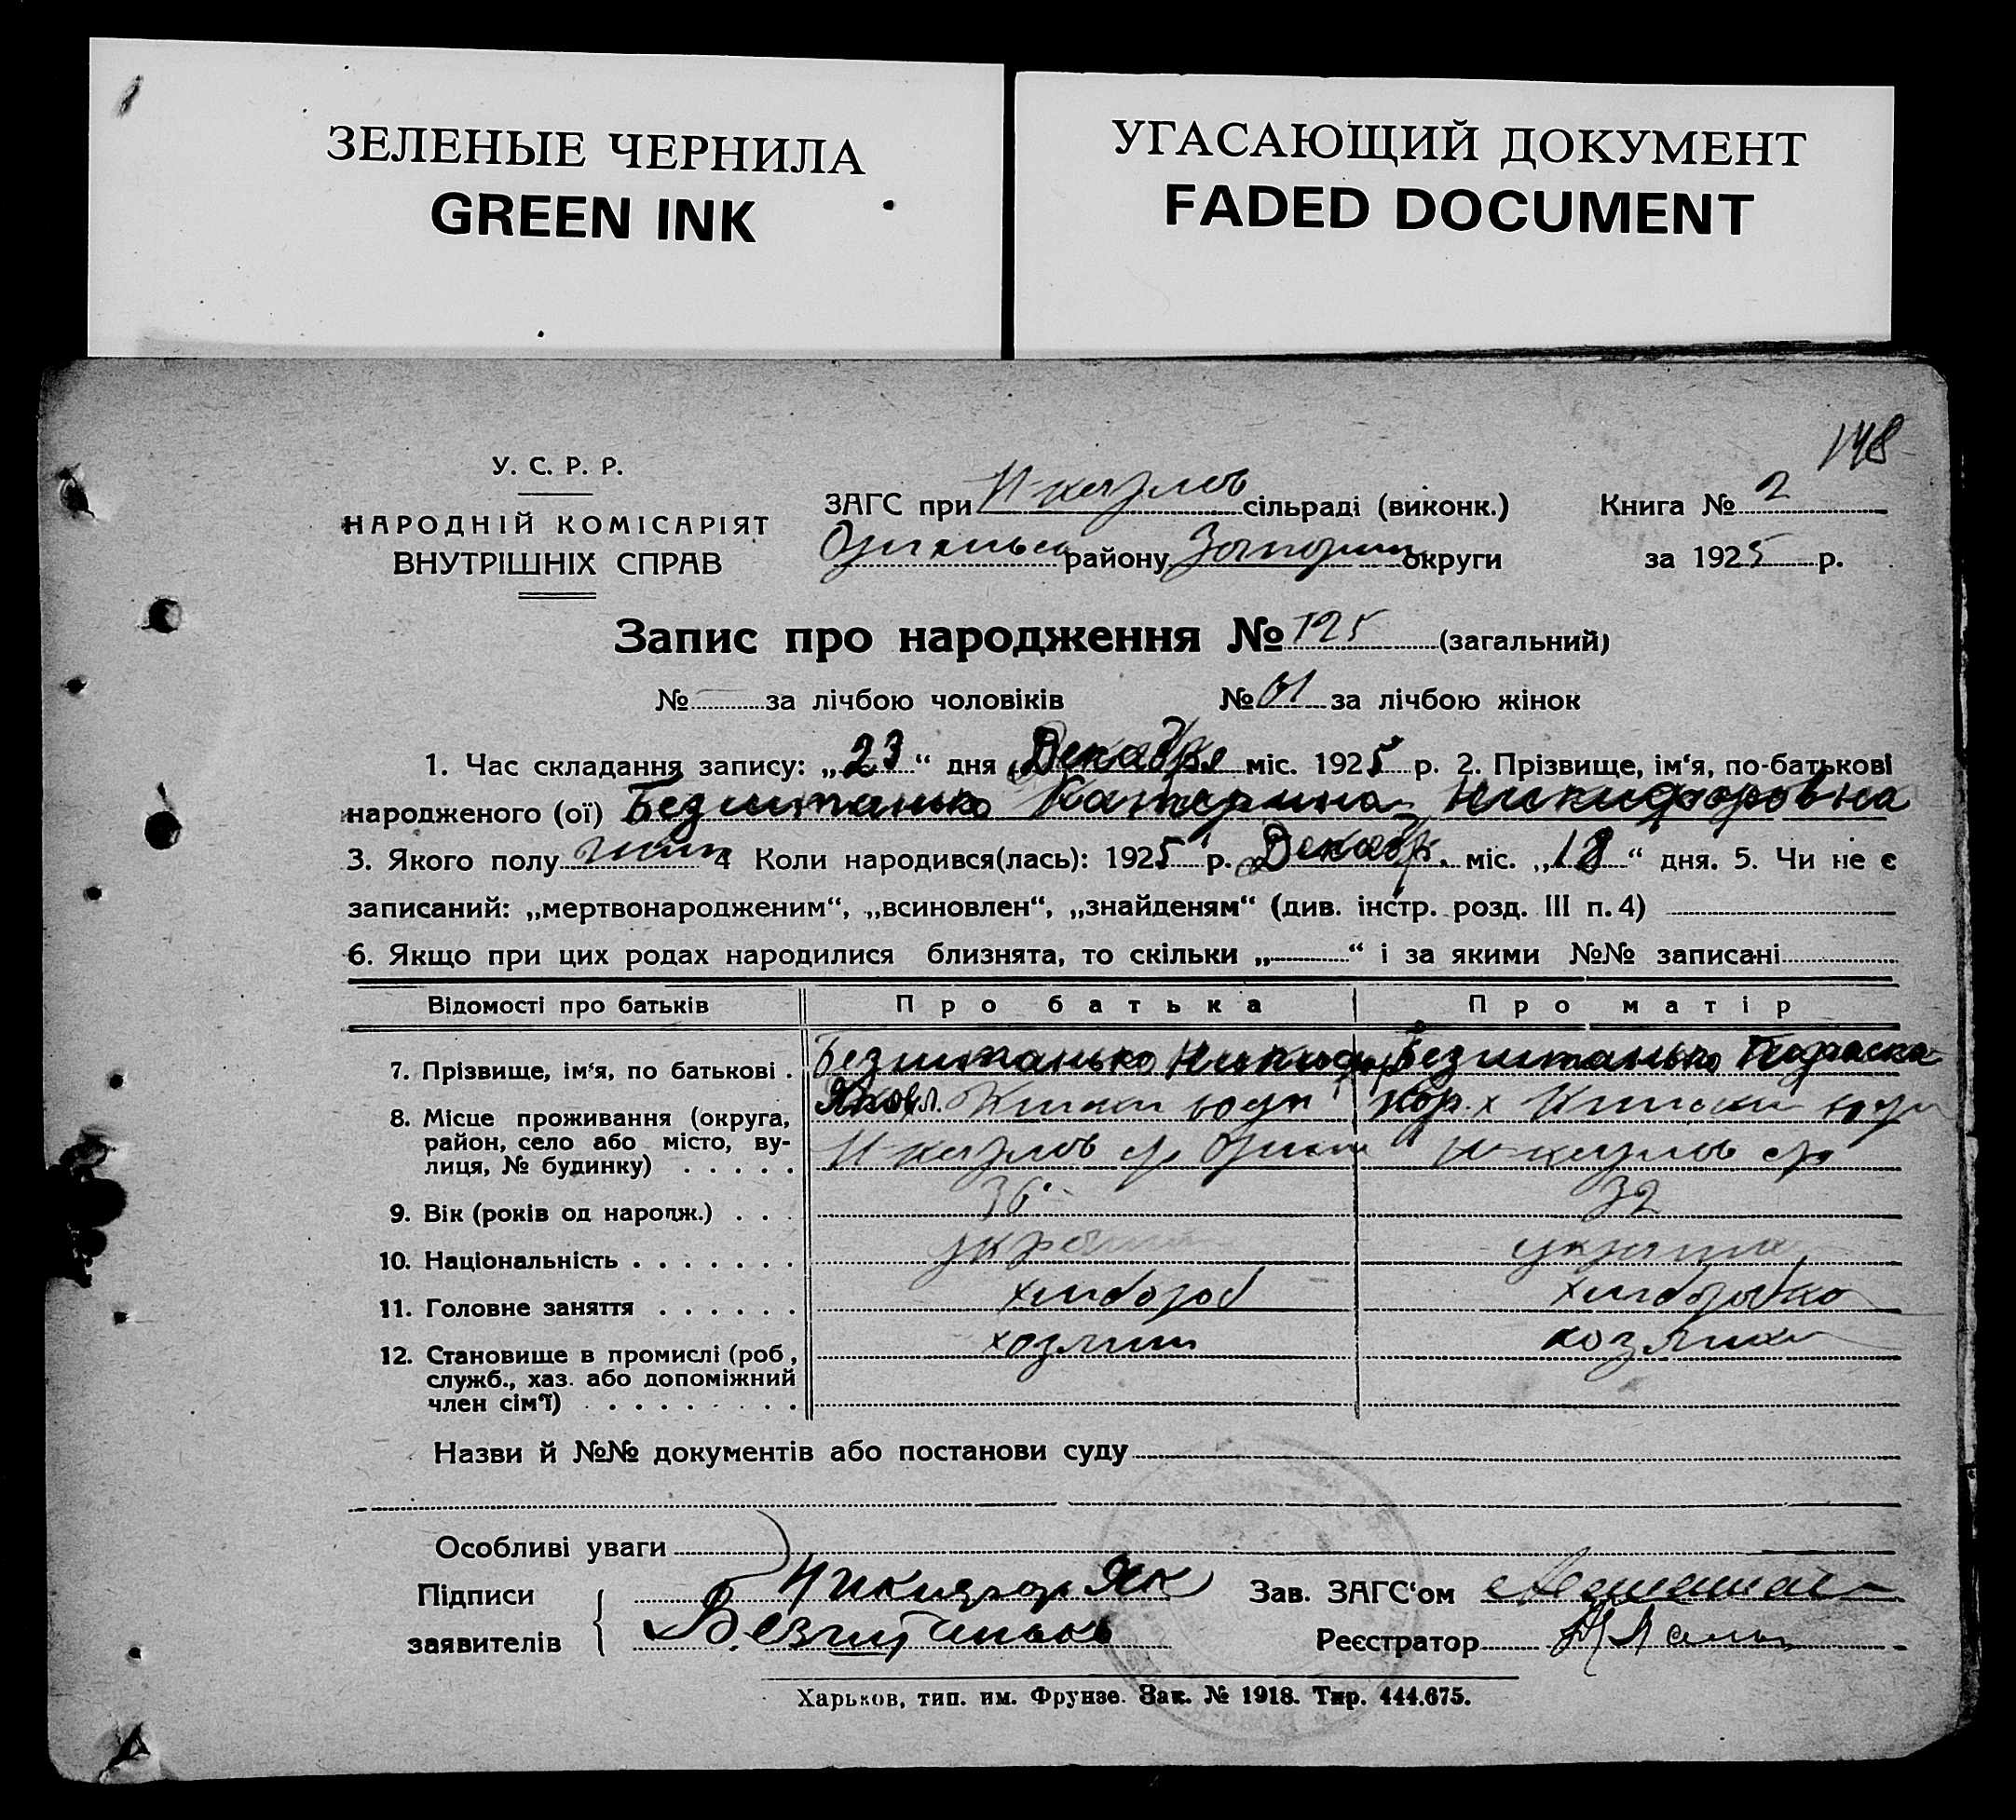 ЗЕЛЕНЫЕ ЧЕРНИЛА
GREEN INK
УГАСАЮЩИЙ ДОКУМЕНТ
FADED DOCUMENT
148
У. С. Р. Р.
НАРОДНІЙ КОМІСАРІЯТ
ВНУТРІШНІХ СПРАВ
ЗАГС при сільраді (виконк.)
району округи
Книга № 2
за 1925 р.
Запис про народження № 125 (загальний)
№ за лічбою чоловіків № 61 за лічбою жінок
1. Час складання запису: „23“ дня Декабря міс. 1925 р. 2. Прізвище, ім‘я, по-батькові
народженого (ої) Безштанько Катерина Никифоровна
3. Якого полу жін 4 Коли народився(лась): 1925 р. Декабр. міс. „18“ дня. 5. Чи не є
записаний: „мертвонародженим“, „всиновлен“, „знайденям“ (див. інстр. розд. III п. 4)
6. Якщо при цих родах народилися близнята, то скільки „ “ і за якими №№ записані
Відомості про батьків Про батька Про матір
7. Прізвище, ім‘я, по батькові . Безштанько Никифор Безштанько Параска
Яковл.
8. Місце проживання (округа,
район, село або місто, ву-
лиця, № будинку) . . . . .
9. Вік (років од народж.) . . . 36 32
10. Національність . . . . . . .
11. Головне заняття . . . . . . хлібороб хлiборобка
12. Становище в промислі (роб., хозяин хозяйка
служб., хаз. або допоміжний
член сім‘ї) . . . . . . . . .
Назви й №№ документів або постанови суду
Особливі уваги
Підписи Никифор Як Зав. ЗАГС‘ом
заявителів Безштанько Реєстратор
Харьков, тип. им. Фрунзе. Зак. № 1918. Тир. 444.675.